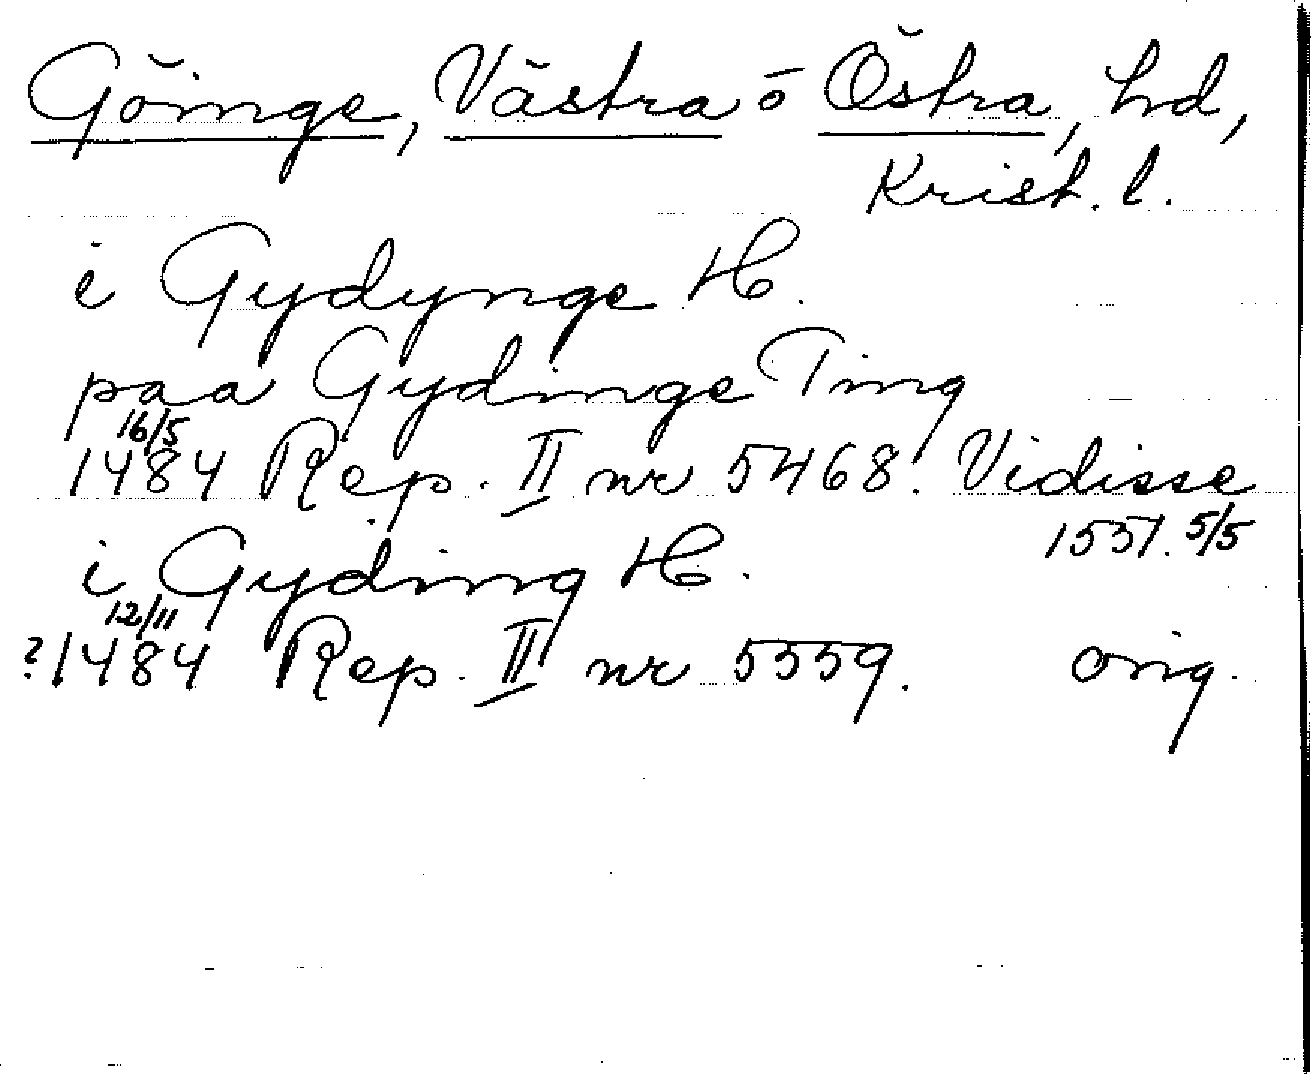 Göinge, Västra o Östra, hd,
Krist. l.
i Gydynge H.
paa Gydinge Ting
16/5
1484 Rep. II nr 5468. Vidisse
1551. 5/5
i Gyding H.
12/11
?1484 Rep. II nr 5559. orig.